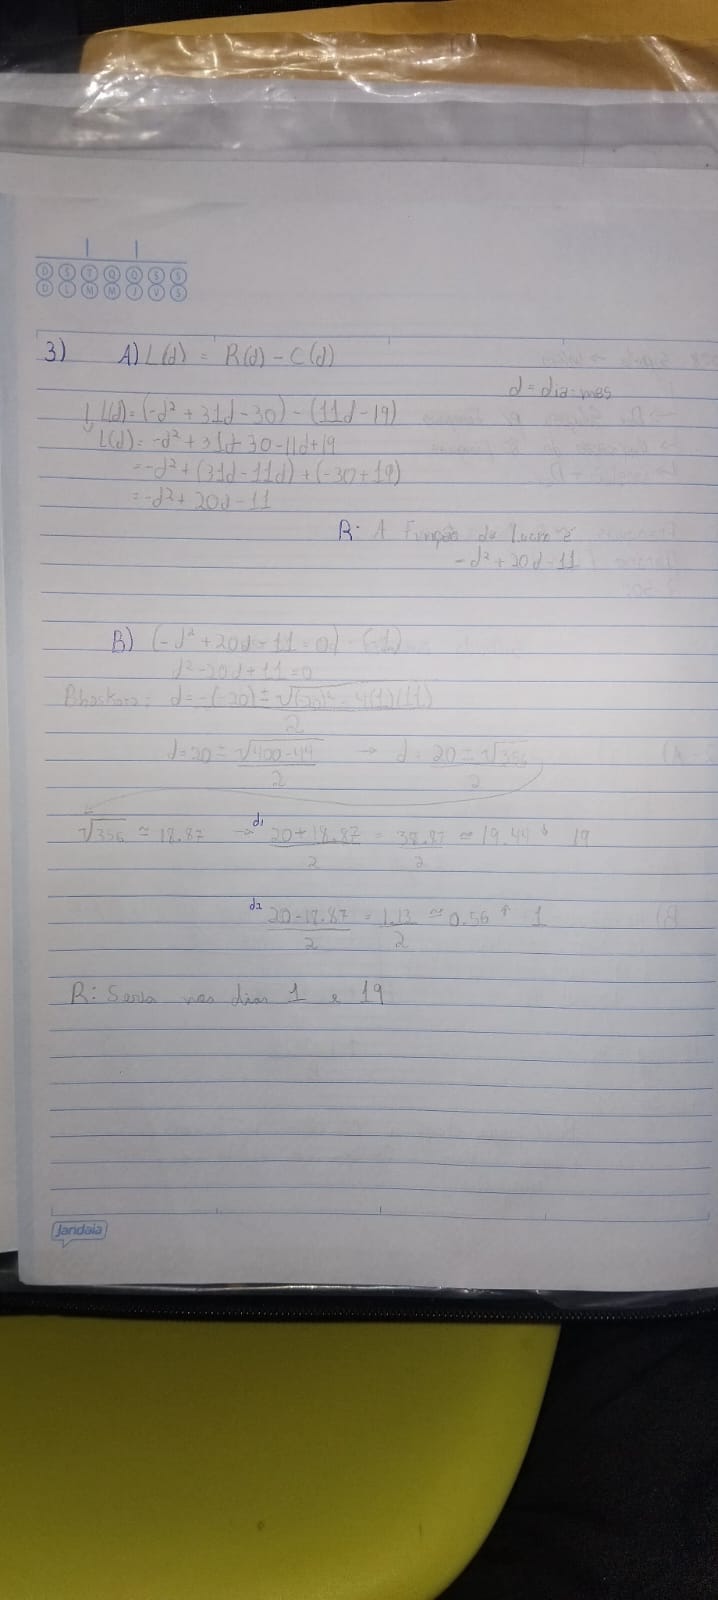 D S T Q Q S S
D L M M J V S
3) A) L(d) = R(d) - C(d)
d = dia-mes
L(d) = (-d² + 31d - 30) - (11d - 19)
L(d) = -d² + 31d - 30 - 11d + 19
= -d² + (31d - 11d) + (-30 + 19)
= -d² + 20d - 11
R: A Função do lucro é
-d² + 20d - 11
B) (-d² + 20d - 11 = 0) · (-1)
d² - 20d + 11 = 0
Bhaskara: d = -(-20) ± √(-20)² - 4(1)(11)
2
d = 20 ± √400-44 → d = 20 ± √356
2 2
√356 ≃ 18.87 → d₁ 20 + 18.87 = 38.87 ≃ 19.44 ↓ 19
2 2
d₂ 20 - 18.87 = 1.13 ≃ 0.56 ↑ 1
2 2
R: Seria nos dias 1 e 19
Jandaia